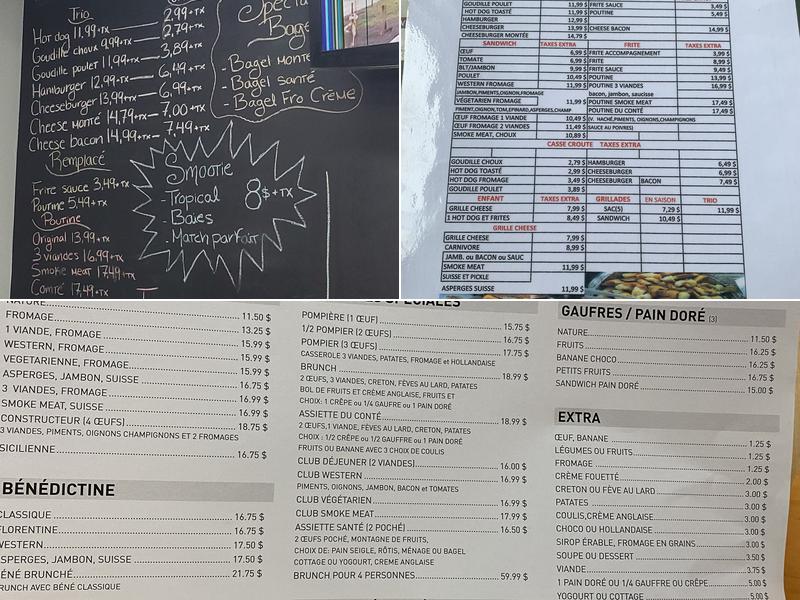 Trio
Hot dog 11,99+TX
Goudille choux 9,99+TX
Goudille poulet 11,99+TX
Hamburger 12,99+TX
Cheeseburger 13,99+TX
Cheese monté 14,79+TX
Cheese bacon 14,99+TX
2,99+TX
2,79+TX
3,89+TX
6,49+TX
6,99+TX
7,00+TX
7,49+TX
Remplacé
Frite sauce 3,49+TX
Poutine 5,49+TX
Poutine
Original 13,99+TX
3 viandes 16,99+TX
Smoke meat 17,49+TX
Comté 17,49+TX
Bage
- Bagel monté
- Bagel santé
- Bagel Fro Crème
Smootie
- Tropical
- Baies
- Match parfait
8$+TX
GOUDILLE POULET 11,99 $ FRITE SAUCE 3,49 $
HOT DOG TOASTÉ 11,99 $ POUTINE 5,49 $
HAMBURGER 12,99 $
CHEESEBURGER 13,99 $ CHEESE BACON 14,99 $
CHEESEBURGER MONTÉE 14,79 $
SANDWICH TAXES EXTRA FRITE TAXES EXTRA
ŒUF 6,99 $ FRITE ACCOMPAGNEMENT 3,99 $
TOMATE 6,99 $ FRITE 8,99 $
BLT/JAMBON 9,99 $ FRITE SAUCE 9,49 $
POULET 10,49 $ POUTINE 13,99 $
WESTERN FROMAGE 11,99 $ POUTINE 3 VIANDES 16,99 $
JAMBON,PIMENTS,OIGNON,FROMAGE bacon, jambon, saucisse
VÉGÉTARIEN FROMAGE 11,99 $ POUTINE SMOKE MEAT 17,49 $
PIMENT,OIGNON,TOM,EPINARD,ASPERGES,CHAMP POUTINE DU CONTÉ 17,49 $
ŒUF FROMAGE 1 VIANDE 10,49 $ (V. HACHÉ,PIMENTS,OIGNONS,CHAMPIGNONS
ŒUF FROMAGE 2 VIANDES 11,49 $ SAUCE AU POIVRES)
SMOKE MEAT, CHOUX 10,89 $
CASSE CROUTE TAXES EXTRA
GOUDILLE CHOUX 2,79 $ HAMBURGER 6,49 $
HOT DOG TOASTÉ 2,99 $ CHEESEBURGER 6,99 $
HOT DOG FROMAGE 3,49 $ CHEESEBURGER BACON 7,49 $
GOUDILLE POULET 3,89 $
ENFANT TAXES EXTRA GRILLADES EN SAISON TRIO
GRILLE CHEESE 7,99 $ SAC(5) 7,29 $ 11,99 $
1 HOT DOG ET FRITES 8,49 $ SANDWICH 10,49 $
GRILLE CHEESE
GRILLE CHEESE 7,99 $
CARNIVORE 8,99 $
JAMB. ou BACON ou SAUC
SMOKE MEAT 11,99 $
SUISSE ET PICKLE
ASPERGES SUISSE 11,99 $
NATURE
FROMAGE 11.50 $
1 VIANDE, FROMAGE 13.25 $
WESTERN, FROMAGE 15.99 $
VEGETARIENNE, FROMAGE 15.99 $
ASPERGES, JAMBON, SUISSE 15.99 $
3 VIANDES, FROMAGE 16.75 $
SMOKE MEAT, SUISSE 16.99 $
CONSTRUCTEUR (4 ŒUFS) 16.99 $
3 VIANDES, PIMENTS, OIGNONS CHAMPIGNONS ET 2 FROMAGES 18.75 $
SICILIENNE 16.75 $
BÉNÉDICTINE
CLASSIQUE 16.75 $
FLORENTINE 16.75 $
WESTERN 17.50 $
ASPERGES, JAMBON, SUISSE 17.50 $
BÉNÉ BRUNCHÉ 21.75 $
BRUNCH AVEC BÉNÉ CLASSIQUE
SPÉCIALES
POMPIÈRE (1 ŒUF) 15.75 $
1/2 POMPIER (2 ŒUFS) 16.75 $
POMPIER (3 ŒUFS) 17.75 $
CASSEROLE 3 VIANDES, PATATES, FROMAGE et HOLLANDAISE
BRUNCH 18.99 $
2 ŒUFS, 3 VIANDES, CRETON, FÈVES AU LARD, PATATES
BOL DE FRUITS ET CRÈME ANGLAISE, FRUITS ET
CHOIX: 1 CRÊPE ou 1/4 GAUFFRE ou 1 PAIN DORÉ
ASSIETTE DU CONTÉ 18.99 $
2 ŒUFS,1 VIANDE, FÈVES AU LARD, CRETON, PATATES
CHOIX : 1/2 CRÊPE ou 1/2 GAUFFRE ou 1 PAIN DORÉ
FRUITS OU BANANE AVEC 3 CHOIX DE COULIS
CLUB DÉJEUNER (2 VIANDES) 16.00 $
CLUB WESTERN 16.99 $
PIMENTS, OIGNONS, JAMBON, BACON et TOMATES
CLUB VÉGÉTARIEN 16.99 $
CLUB SMOKE MEAT 17.99 $
ASSIETTE SANTÉ (2 POCHÉ) 16.50 $
2 ŒUFS POCHÉ, MONTAGNE DE FRUITS,
CHOIX DE: PAIN SEIGLE, RÔTIS, MÉNAGE OU BAGEL
COTTAGE OU YOGOURT, CREME ANGLAISE
BRUNCH POUR 4 PERSONNES 59.99 $
GAUFRES / PAIN DORÉ (3)
NATURE 11.50 $
FRUITS 16.25 $
BANANE CHOCO 16.25 $
PETITS FRUITS 16.75 $
SANDWICH PAIN DORÉ 15.00 $
EXTRA
ŒUF, BANANE 1.25 $
LÉGUMES OU FRUITS 1.25 $
FROMAGE 1.25 $
CRÈME FOUETTÉ 2.00 $
CRETON OU FÈVE AU LARD 3.00 $
PATATES 3.00 $
COULIS,CRÈME ANGLAISE 3.00 $
CHOCO OU HOLLANDAISE 3.00 $
SIROP ÉRABLE, FROMAGE EN GRAINS 3.00 $
SOUPE OU DESSERT 3.50 $
VIANDE 3.75 $
1 PAIN DORÉ OU 1/4 GAUFFRE OU CRÊPE 5.00 $
YOGOURT OU COTTAGE 5.00 $